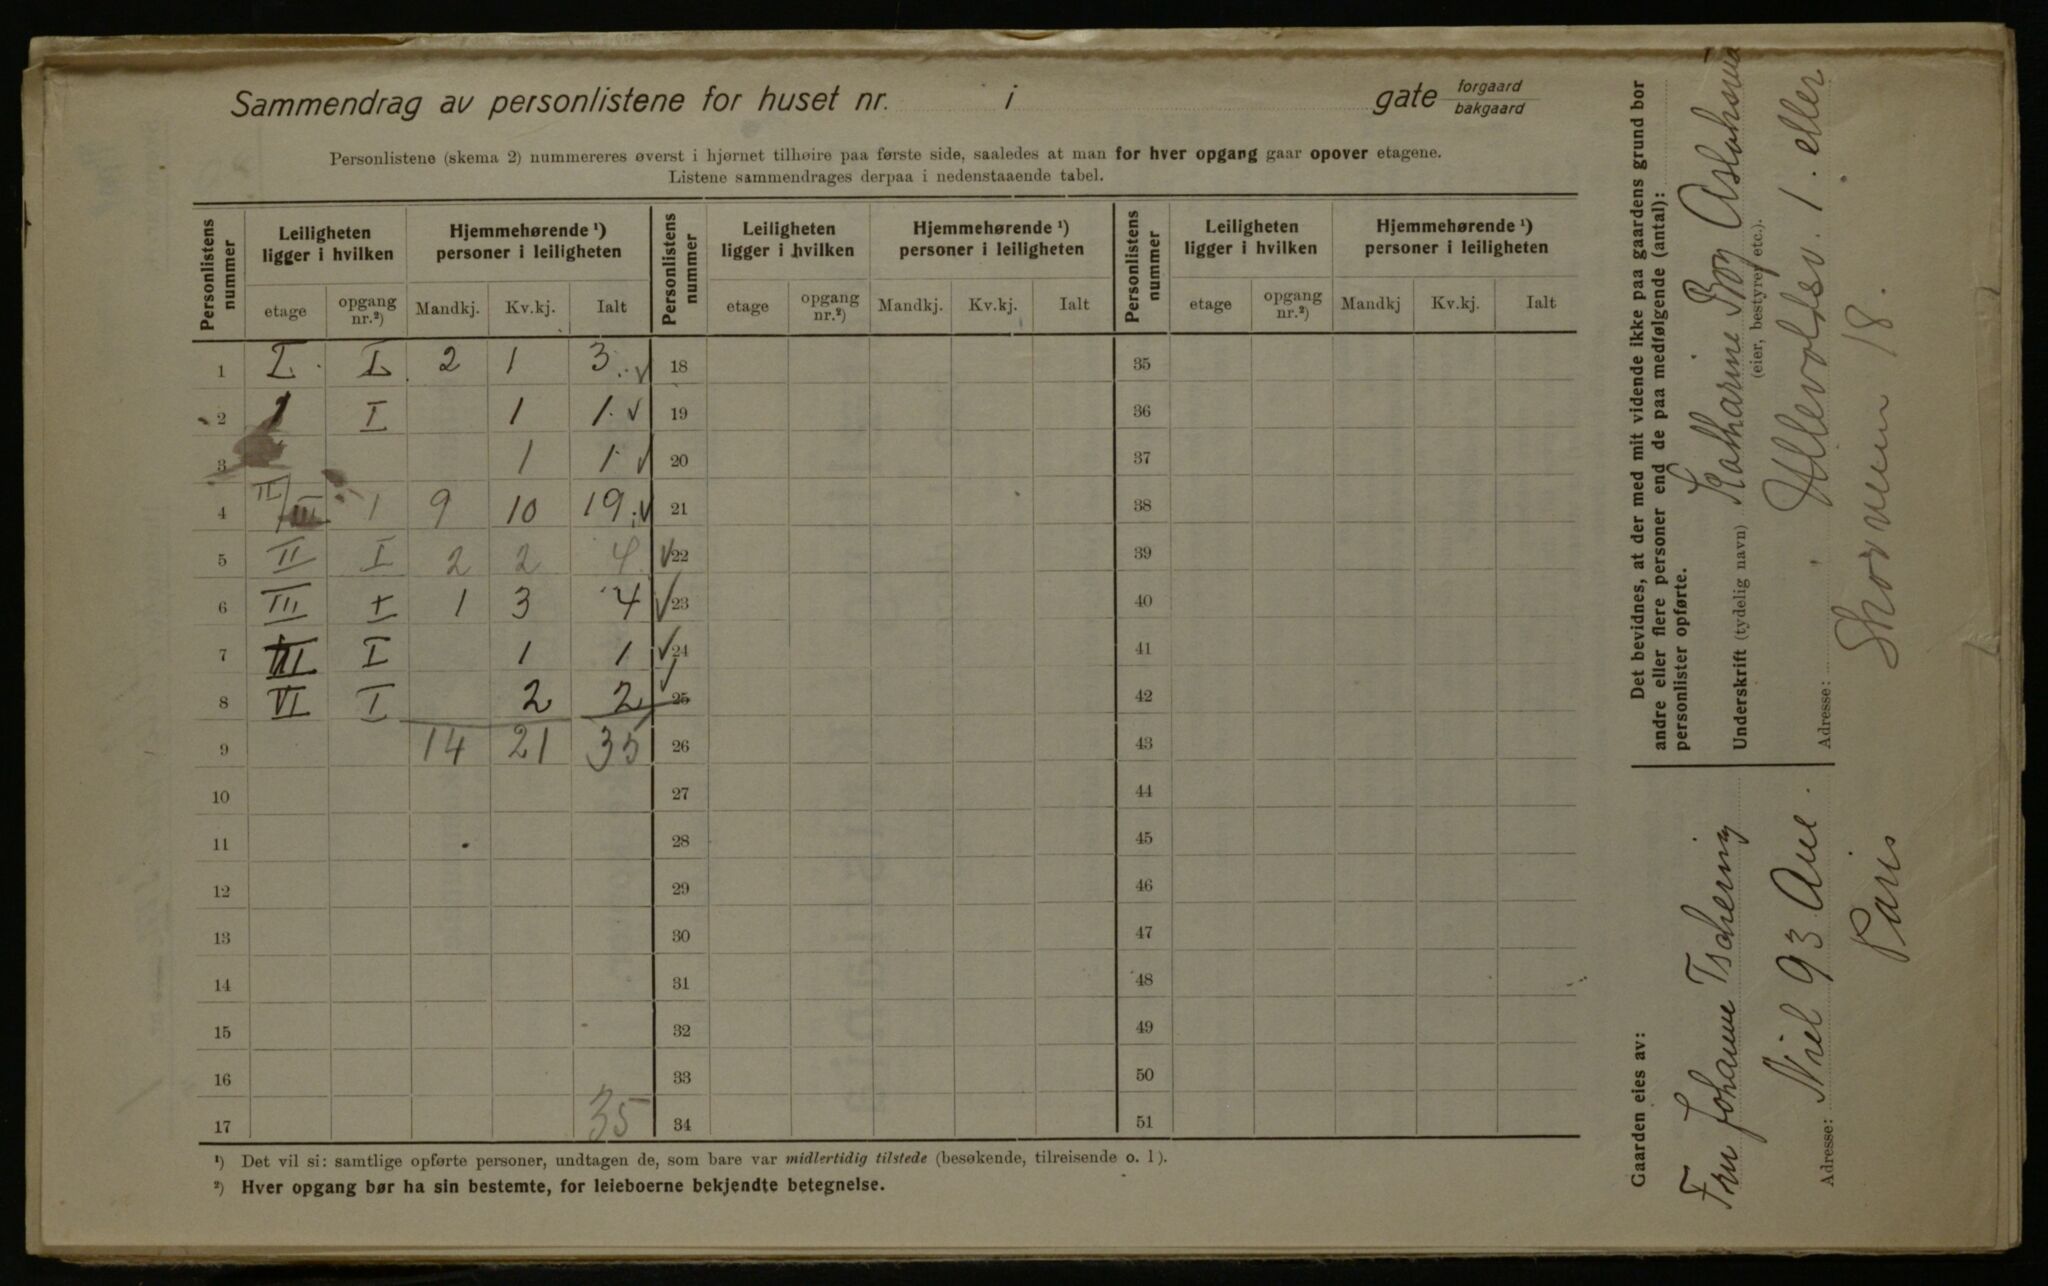 Sammendrag av personlistene for huset nr. i gate forgaard bakgaard
Personlistene (skema 2) nummereres øverst i hjørnet tilhøire paa første side, saaledes at man for hver opgang gaar opover etagene.
Listene sammendrages derpaa i nedenstaaende tabel.
Personlistens nummer | Leiligheten ligger i hvilken | Hjemmehørende ¹) personer i leiligheten | Personlistens nummer | Leiligheten ligger i hvilken | Hjemmehørende ¹) personer i leiligheten | Personlistens nummer | Leiligheten ligger i hvilken | Hjemmehørende ¹) personer i leiligheten
etage | opgang nr.²) | Mandkj. | Kv.kj. | Ialt | etage | opgang nr.²) | Mandkj. | Kv.kj. | Ialt | etage | opgang nr.²) | Mandkj | Kv.kj. | Ialt
1 I. I 2 1 3. ✓ 18 35
2 1 I 1 1. ✓ 19 36
3 1 1 ✓ 20 37
4 II/III 1 9 10 19. ✓ 21 38
5 II I 2 2 4 ✓ 22 39
6 III I 1 3 4 ✓ 23 40
7 III I 1 1 ✓ 24 41
8 VI I 2 2 ✓ 25 42
9 14 21 35 26 43
10 27 44
11 28 45
12 29 46
13 30 47
14 31 48
15 32 49
16 33 50
17 35 34 51
¹) Det vil si: samtlige opførte personer, undtagen de, som bare var midlertidig tilstede (besøkende, tilreisende o. l).
²) Hver opgang bør ha sin bestemte, for leieboerne bekjendte betegnelse.
Det bevidnes, at der med mit vidende ikke paa gaardens grund bor
andre eller flere personer end de paa medfølgende (antal):
personlister opførte.
Underskrift (tydelig navn) Katharine
(eier, bestyrer etc.).
Ullevoldsv. 1. eller
Adresse:
18.
Gaarden eies av:
Fru Johanne Tschering
Niel 93 Aue.
Adresse:
Paris